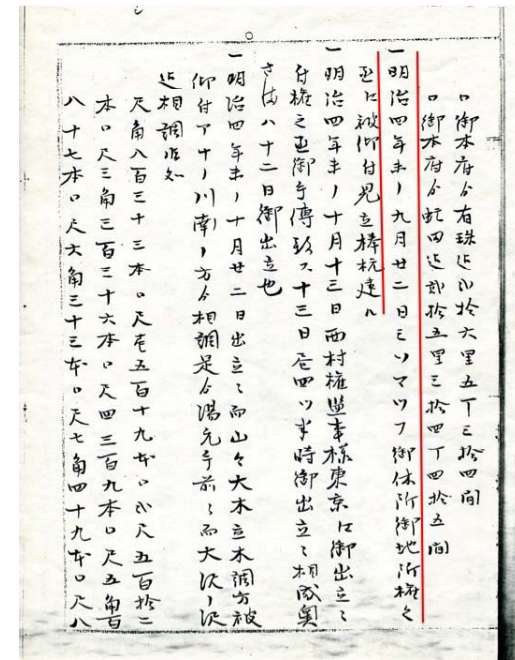 口御本府ゟ有珠迄弐拾六里五丁三拾四間
口御本府ゟ虻田迄弐拾五里三拾四丁四拾五間
一明治四年未ノ九月廿二日ミソマツフ御休所御地所権之
正江被仰付見立棒杭建ル
一明治四年未ノ十月十三日西村権監事様東京江御出立ニ
付権之正御手傳致ス十三日昼四ツ半時御出立ニ相成奥
さま八十二日御出立也
一明治四年未ノ十月廿二日出立ニ而山々大木立木調方被
仰付アナノ川南ノ方ゟ相調是ゟ湯元手前ニ而大沢ノ沢
迄相調承知
尺角八百三十三本口尺壱五百十九本口弐尺五百拾二
本口尺三角三百三十六本口尺四三百九本口尺五角百
八十七本口尺六角三十三本口尺七角四十九本口尺八